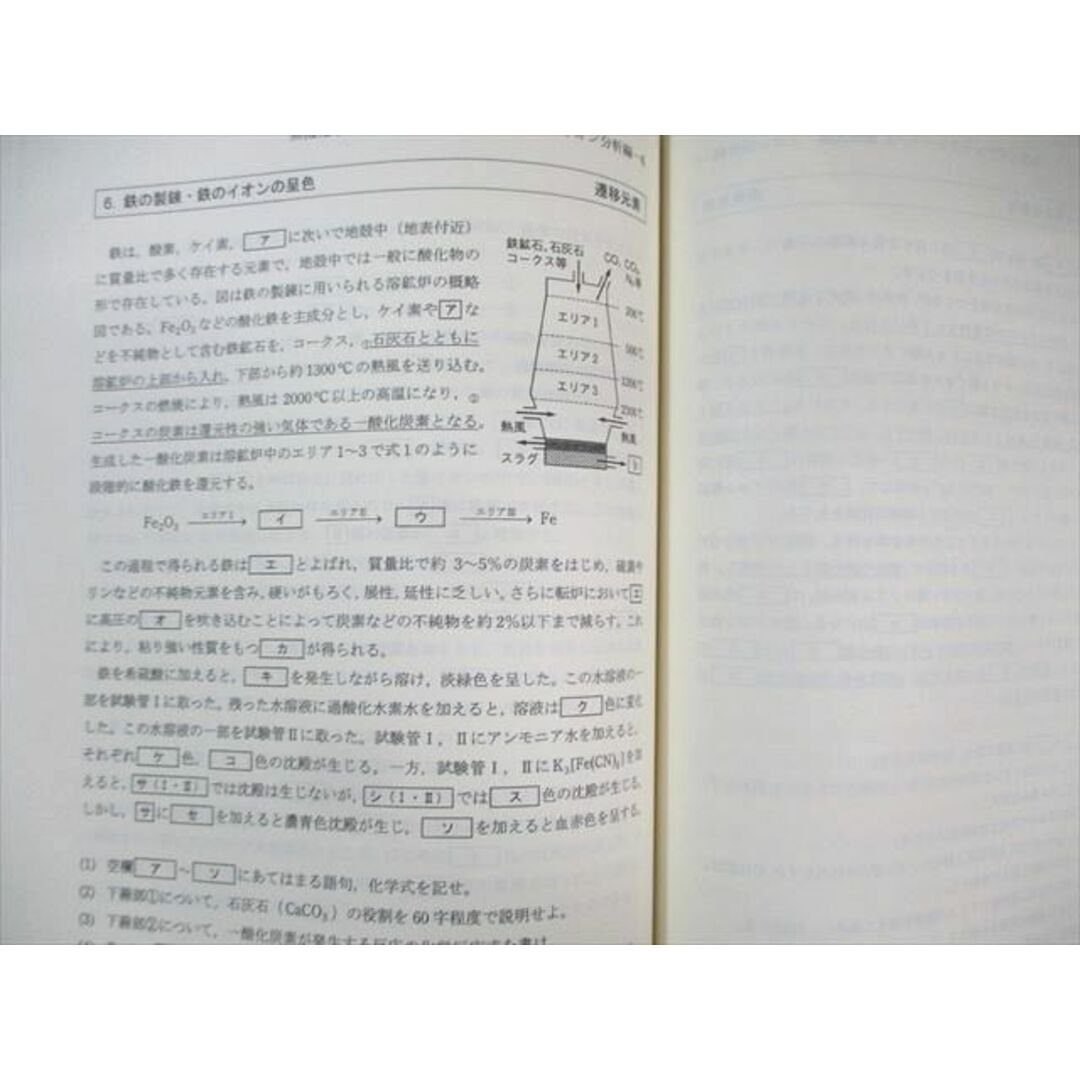 6. 鉄の製錬・鉄のイオンの呈色
遷移元素
鉄は，酸素，ケイ素，ア に次いで地殻中（地表付近）
に質量比で多く存在する元素で，地殻中では一般に酸化物の
形で存在している。図は鉄の製錬に用いられる溶鉱炉の概略
図である。Fe₂O₃などの酸化鉄を主成分とし，ケイ素や ア な
どを不純物として含む鉄鉱石を，コークス，①石灰石とともに
溶鉱炉の上部から入れ，下部から約1300℃の熱風を送り込む。
コークスの燃焼により，熱風は2000℃以上の高温になり，②
コークスの炭素は還元性の強い気体である一酸化炭素となる。
生成した一酸化炭素は溶鉱炉中のエリア1〜3で式1のように
段階的に酸化鉄を還元する。
鉄鉱石，石灰石
コークス等
CO, CO₂
エリア1
エリア2
エリア3
熱風
熱風
スラグ
Fe₂O₃ エリアⅠ→ イ エリアⅡ→ ウ エリアⅢ→ Fe
この過程で得られる鉄は エ とよばれ，質量比で約 3〜5%の炭素をはじめ，硫黄や
リンなどの不純物元素を含み，硬いがもろく，展性，延性に乏しい。さらに転炉において エ
に高圧の オ を吹き込むことによって炭素などの不純物を約2%以下まで減らす。これ
により，粘り強い性質をもつ カ が得られる。
鉄を希硫酸に加えると，キ を発生しながら溶け，淡緑色を呈した。この水溶液の一
部を試験管Ⅰに取った。残った水溶液に過酸化水素水を加えると，溶液は ク 色に変化
した。この水溶液の一部を試験管Ⅱに取った。試験管Ⅰ，Ⅱにアンモニア水を加えると，
それぞれ ケ 色，コ 色の沈殿が生じる。一方，試験管Ⅰ，ⅡにK₃[Fe(CN)₆]を加
えると，サ（Ⅰ・Ⅱ）では沈殿は生じないが，シ（Ⅰ・Ⅱ）では ス 色の沈殿が生じる。
しかし，サ に セ を加えると濃青色沈殿が生じ，ソ を加えると血赤色を呈する。
(1) 空欄 ア 〜 ソ にあてはまる語句，化学式を記せ。
(2) 下線部①について，石灰石（CaCO₃）の役割を60字程度で説明せよ。
(3) 下線部②について，一酸化炭素が発生する反応の化学反応式を書け